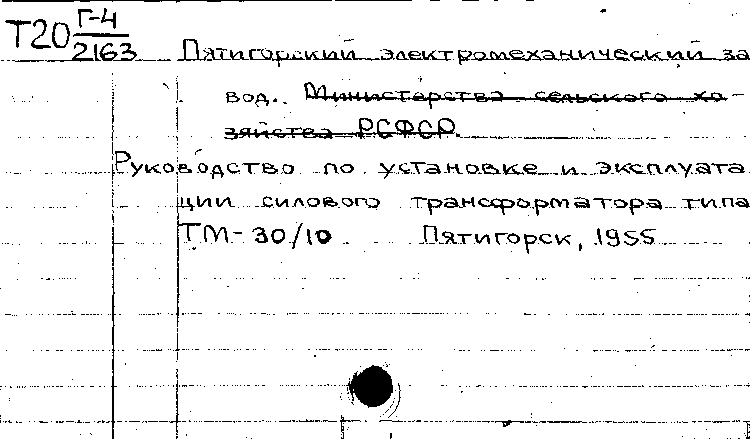 Т20 Г-4
2163
Пятигорский электромеханический за
вод. Министерства сельского хо-
зяйства РСФСР.
Руководство по установке и эксплуата
ции силового трансформатора типа
ТМ-30/10 Пятигорск, 1955